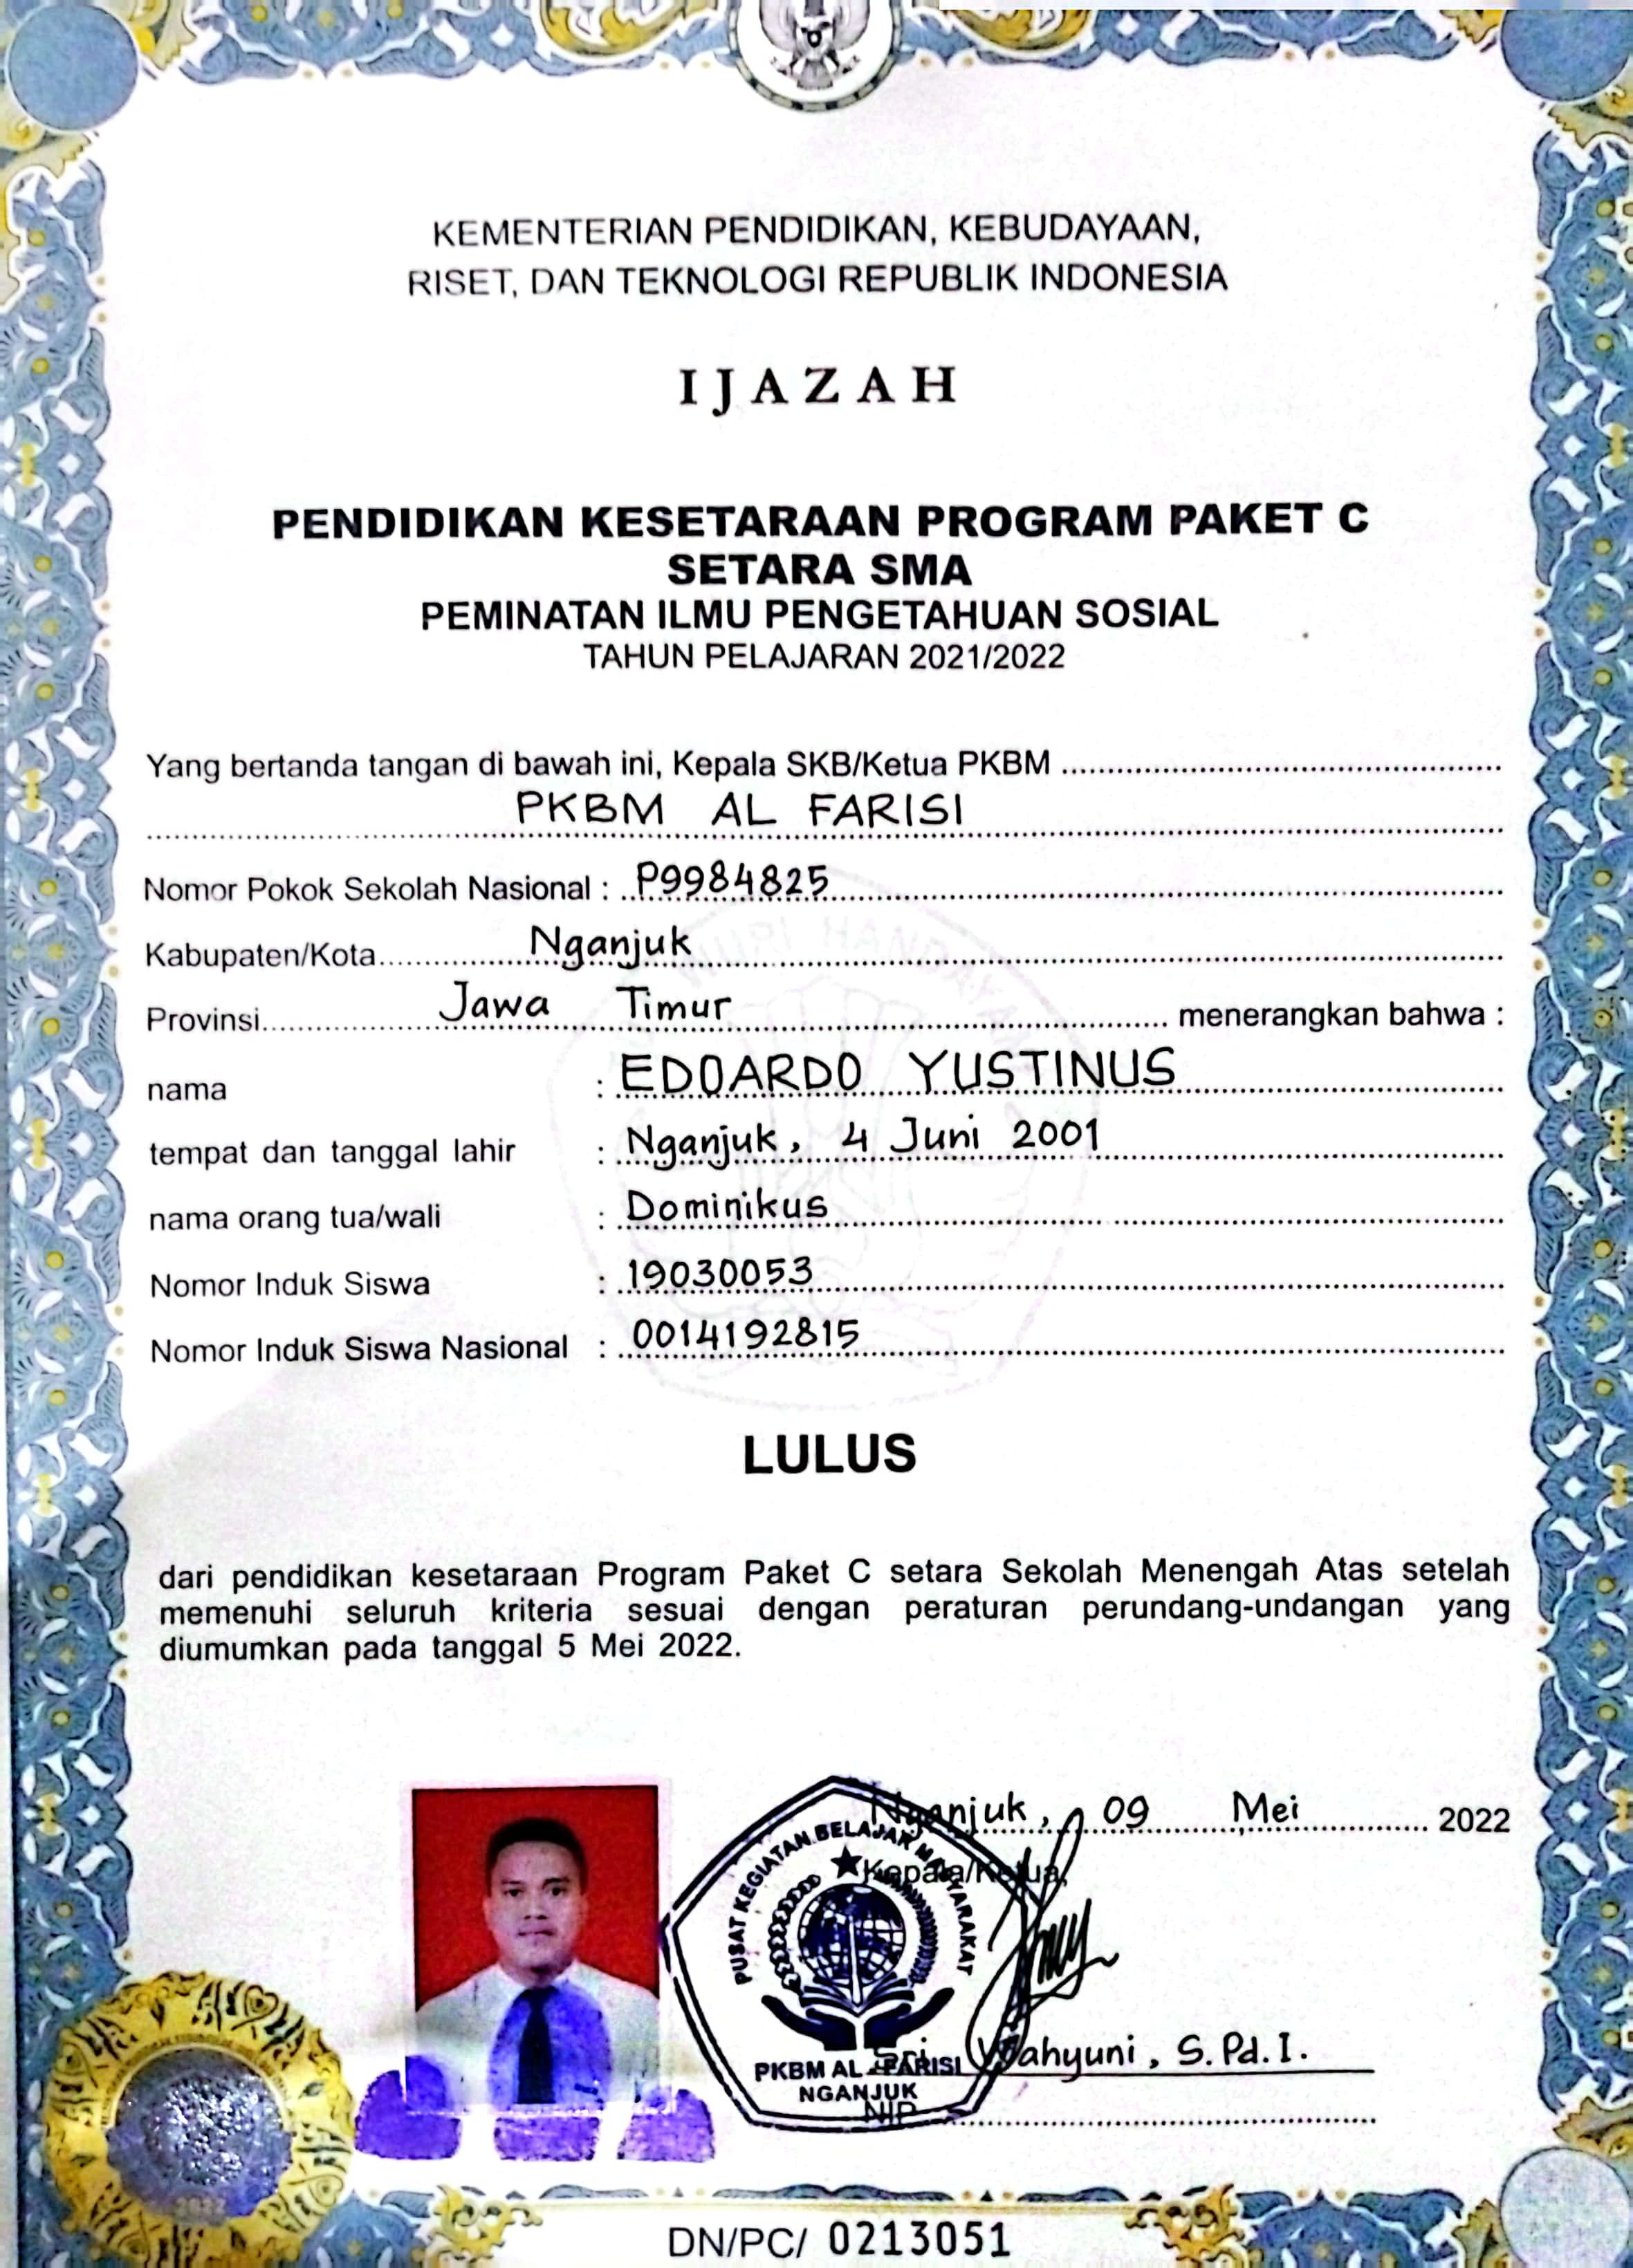 KEMENTERIAN PENDIDIKAN, KEBUDAYAAN,
RISET, DAN TEKNOLOGI REPUBLIK INDONESIA
IJAZAH
PENDIDIKAN KESETARAAN PROGRAM PAKET C
SETARA SMA
PEMINATAN ILMU PENGETAHUAN SOSIAL
TAHUN PELAJARAN 2021/2022
Yang bertanda tangan di bawah ini, Kepala SKB/Ketua PKBM
PKBM AL FARISI
Nomor Pokok Sekolah Nasional : P9984825
Kabupaten/Kota Nganjuk
Provinsi Jawa Timur menerangkan bahwa :
nama : EDOARDO YUSTINUS
tempat dan tanggal lahir : Nganjuk, 4 Juni 2001
nama orang tua/wali : Dominikus
Nomor Induk Siswa : 19030053
Nomor Induk Siswa Nasional : 0014192815
LULUS
dari pendidikan kesetaraan Program Paket C setara Sekolah Menengah Atas setelah
memenuhi seluruh kriteria sesuai dengan peraturan perundang-undangan yang
diumumkan pada tanggal 5 Mei 2022.
Nganjuk, 09 Mei 2022
Kepala/Ketua,
PUSAT KEGIATAN BELAJAR MASYARAKAT
PKBM AL-FARISI
NGANJUK
Sri Wahyuni, S.Pd.I.
NIP
2022
DN/PC/ 0213051